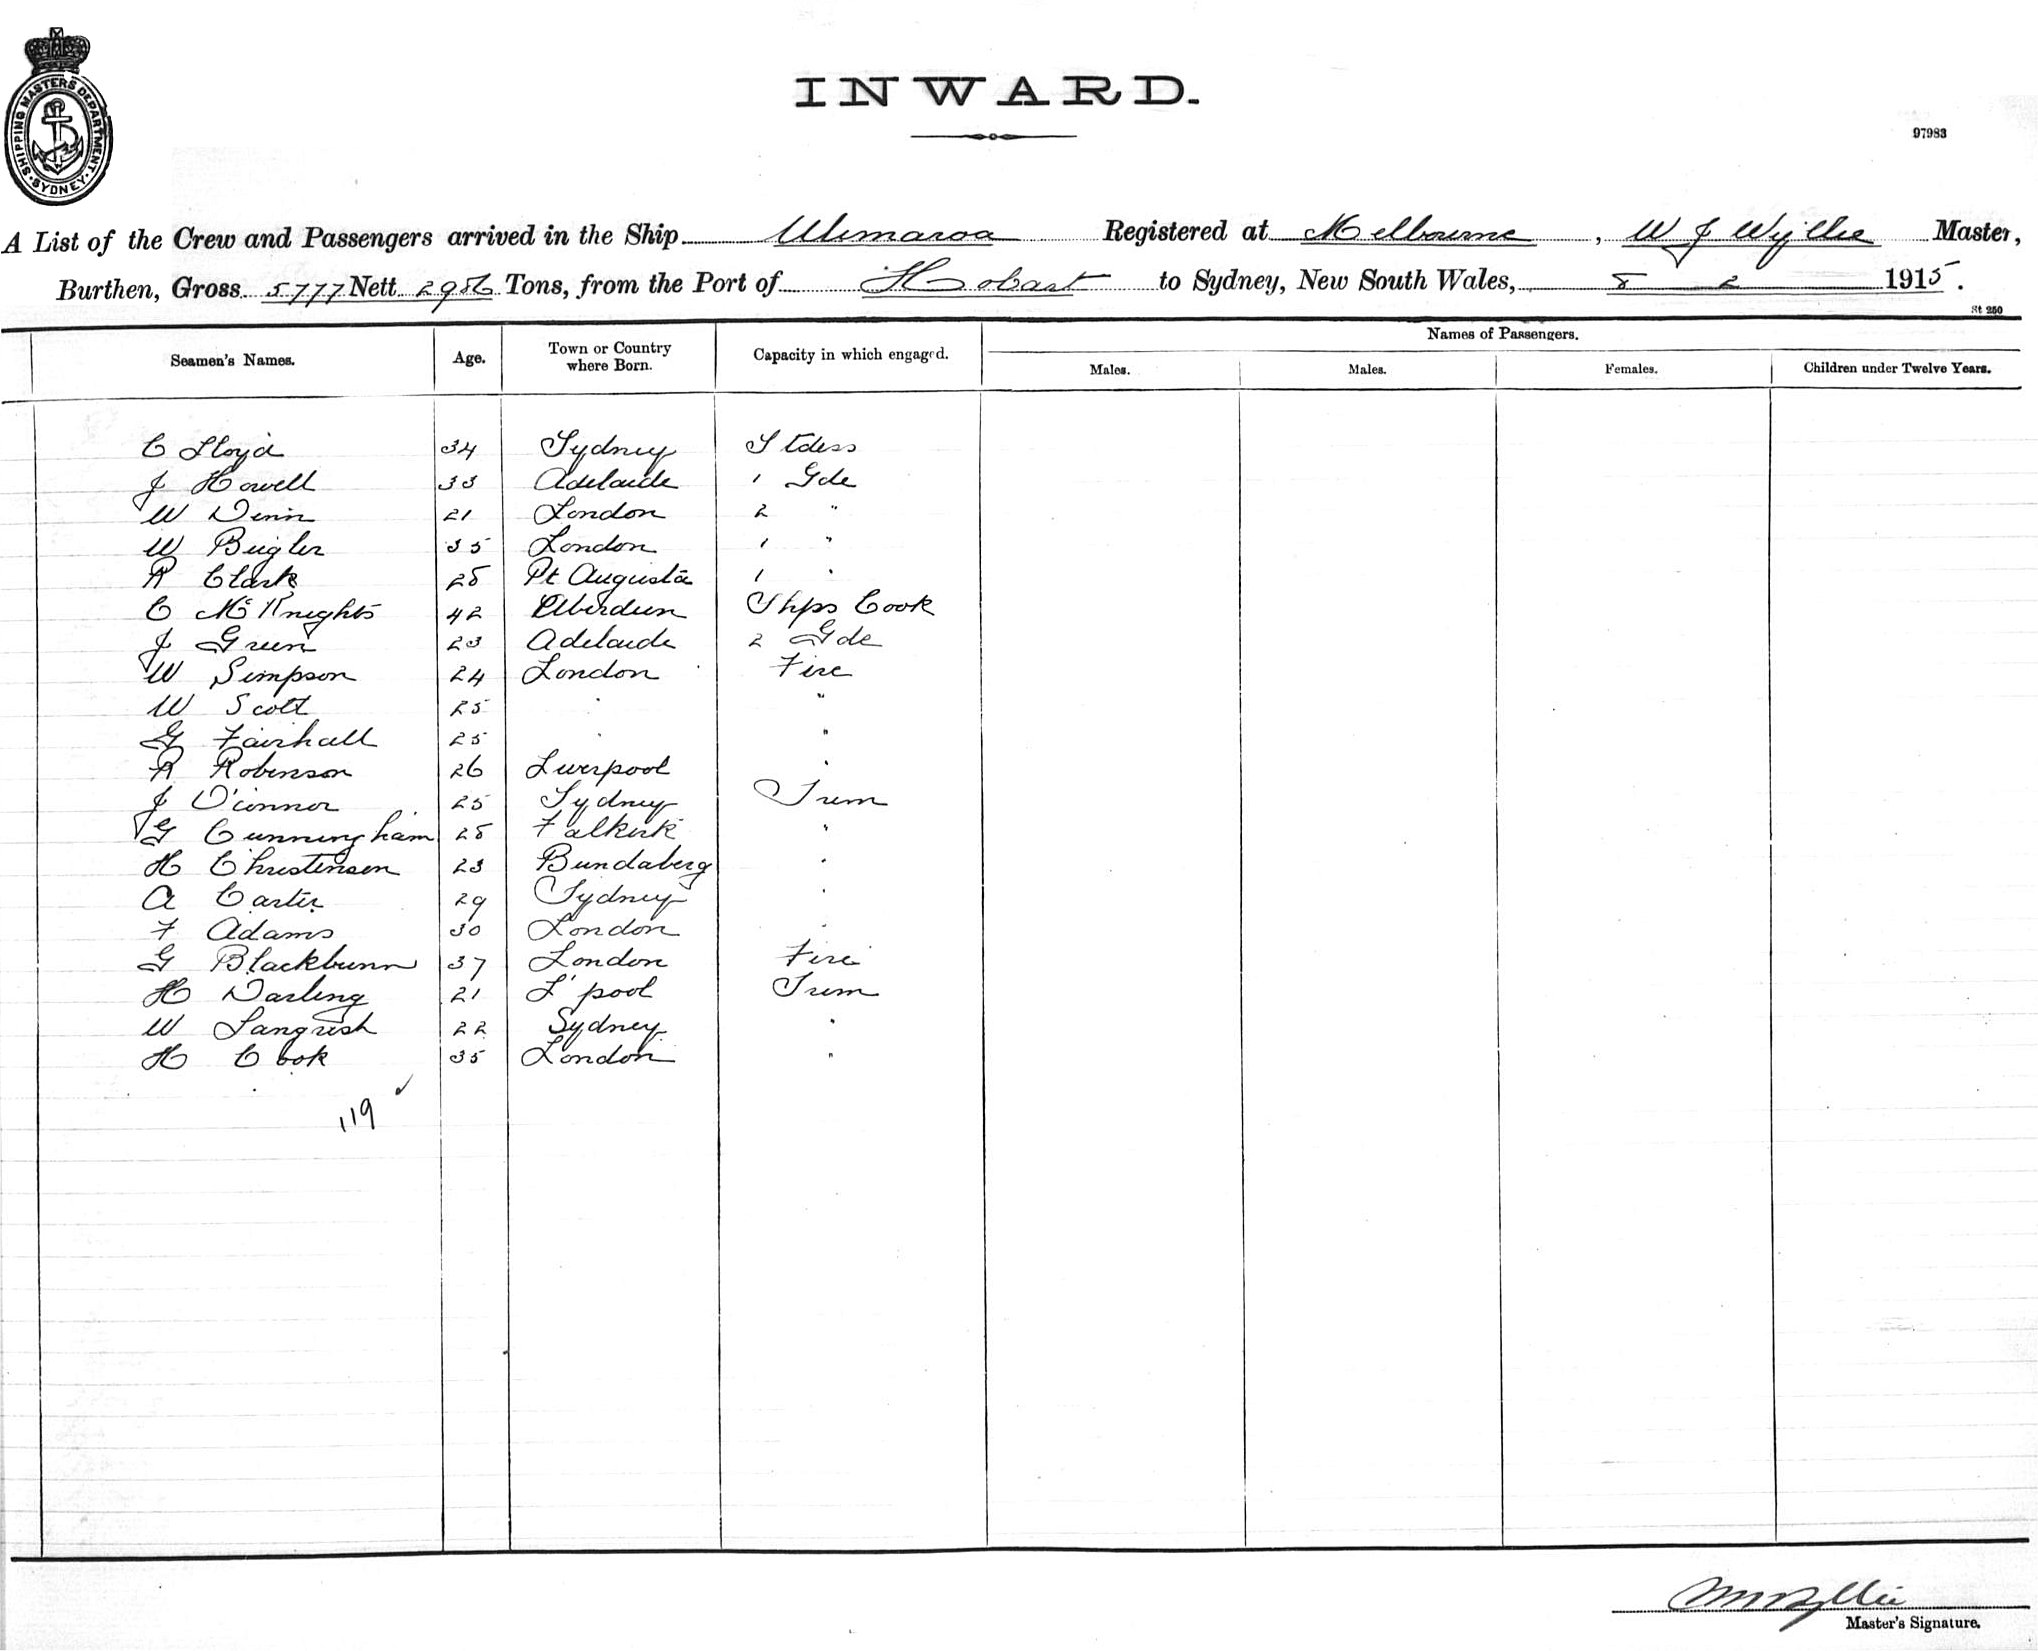 SHIPPING MASTERS DEPARTMENT. SYDNEY
INWARD.
97983
A List of the Crew and Passengers arrived in the Ship Ulimaroa Registered at Melbourne, W J Wyllie Master,
Burthen, Gross 5777 Nett Tons, from the Port of Hobart to Sydney, New South Wales, 8 2 1915.
St 250
Names of Passengers.
Seamen's Names. Age. Town or Country where Born. Capacity in which engaged. Males. Males. Females. Children under Twelve Years.
C Lloyd 34 Sydney Stdess
J Howell 33 Adelaide 1 Gde
W Denin 21 London 2 "
W Bugler 35 London 1 "
R Clark 28 Pt Augusta 1 "
C McKnights 42 Aberdeen Shps Cook
J Green 23 Adelaide 2 Gde
W Simpson 24 London Fire
W Scott 25 " "
G Fairhall 25 " "
R Robinson 26 Liverpool "
J O'Connor 25 Sydney Trim
G Cunningham 28 Falkirk "
H Christensen 23 Bundaberg "
A Carter 29 Sydney "
F Adams 30 London "
G Blackbunn 37 London Fire
H Darling 21 L'pool Trim
W Langrish 22 Sydney "
H Cook 35 London "
119
W J Wyllie
Master's Signature.